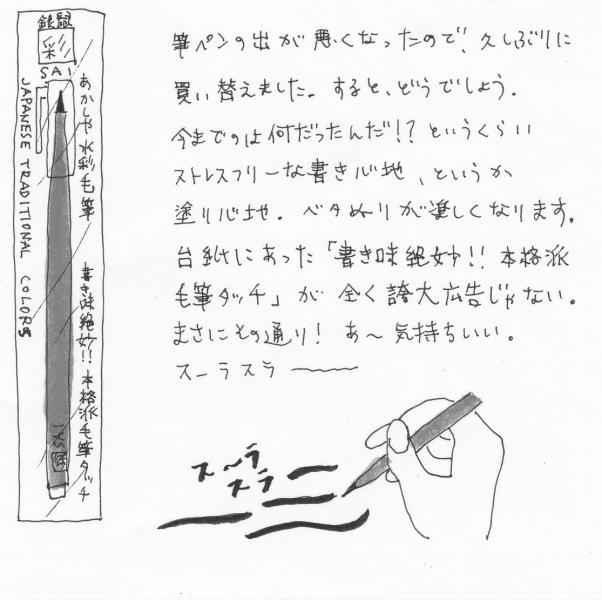 銀鼠
彩
SAI
JAPANESE TRADITIONAL COLORS
あかしや水彩毛筆
書き味絶妙!! 本格派毛筆タッチ
SAI
彩
筆ペンの出が悪くなったので、久しぶりに
買い替えました。すると、どうでしょう。
今までのは何だったんだ!?というくらい
ストレスフリーな書き心地、というか
塗り心地。ベタぬりが楽しくなります。
台紙にあった「書き味絶妙!! 本格派
毛筆タッチ」が全く誇大広告じゃない。
まさにその通り! あ〜気持ちいい。
スーラスラ
ス〜ラ
スラ